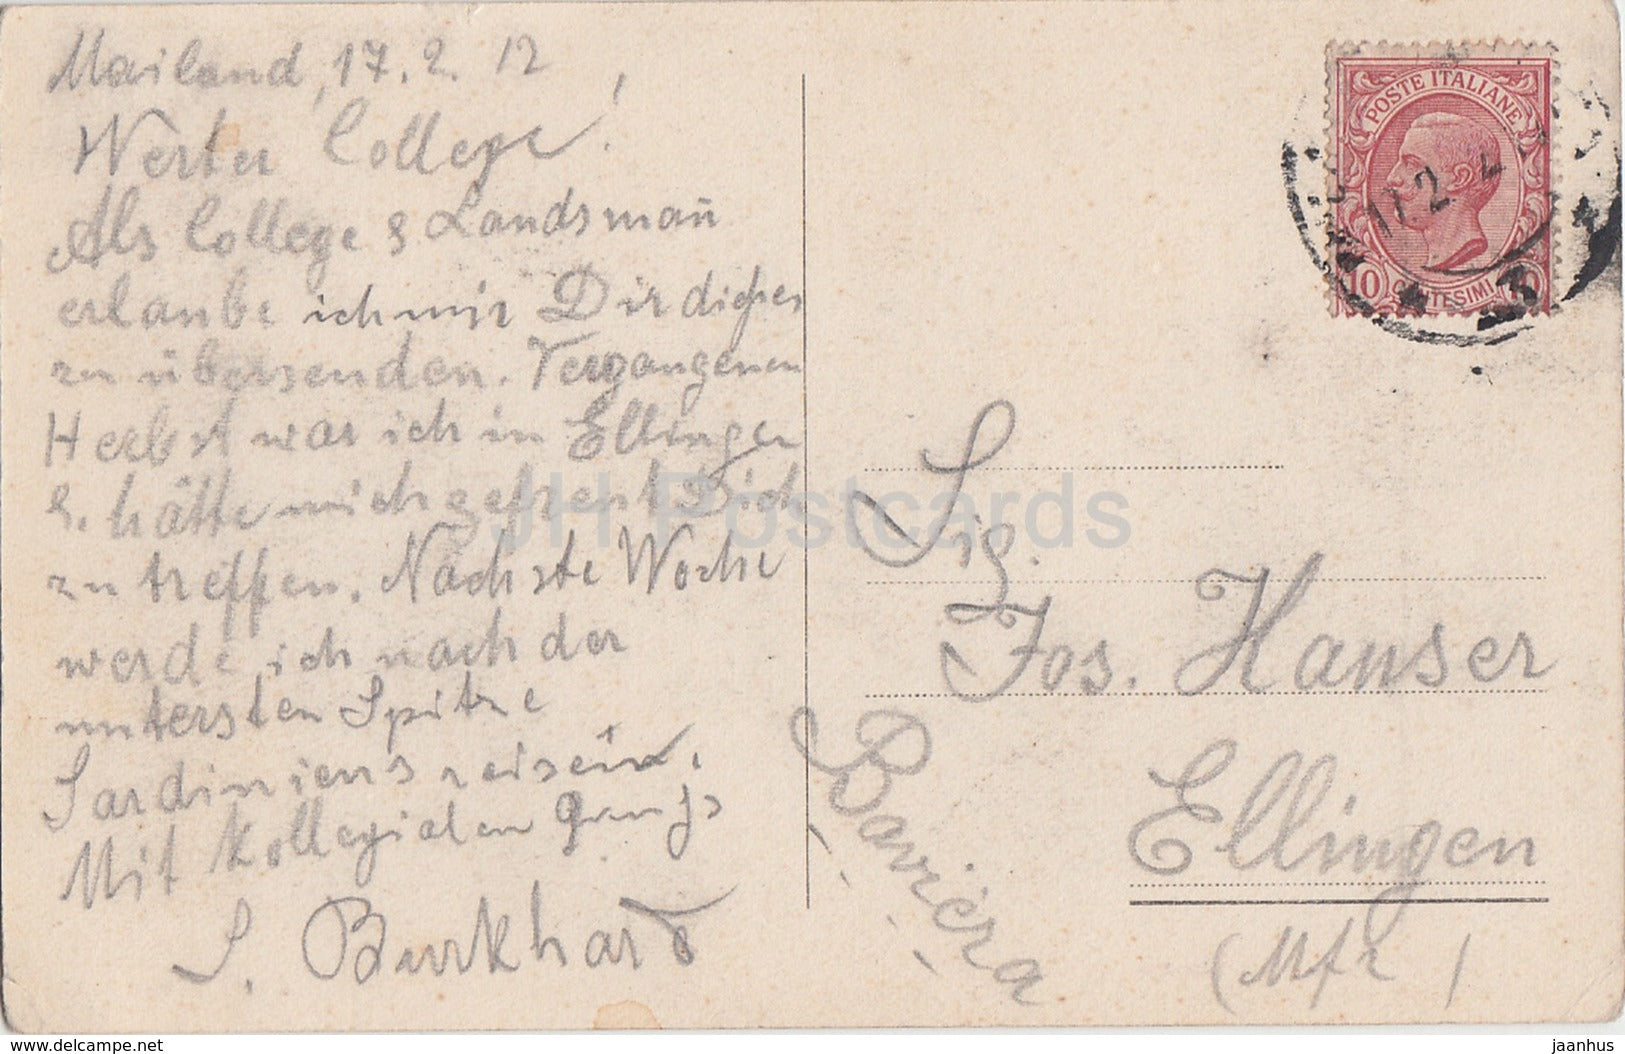 Mailand, 17. 2. 12
Werter College!
Als College & Landsman̄
erlaube ich mir Dir dieses
zu übersenden. Vergangenen
Herbst war ich in Ellingen
&. hätte mich gefreut Dich
zu treffen. Nächste Woche
werde ich nach der
untersten Spitze
Sardiniens reisen.
Mit kollegialen Gruß
S. Burkhard
POSTE ITALIANE
10 CENTESIMI 10
17.2.12
3
Sig.
Jos. Hanser
Ellingen
(Mfr)
Baviera
JH Postcards
https://www.bidStart.com
jaanhus